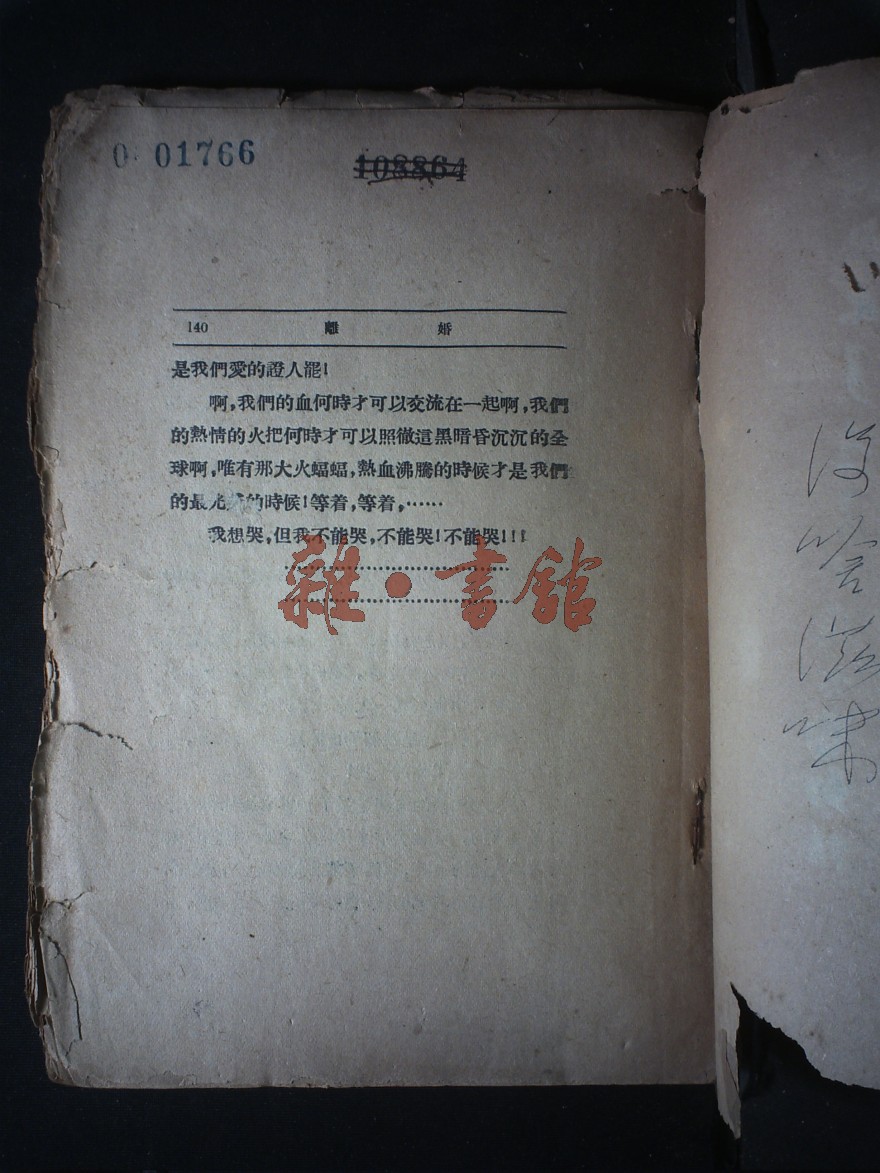 0 01766
108864
140 離 婚
是我們愛的證人罷!
啊,我們的血何時才可以交流在一起啊,我們
的熱情的火把何時才可以照徹這黑暗昏沉沉的全
球啊,唯有那大火蝠蝠,熱血沸騰的時候才是我們
的最光的時候!等着,等着,……
我想哭,但我不能哭,不能哭!不能哭!!!
雜·書館
没啥滋味